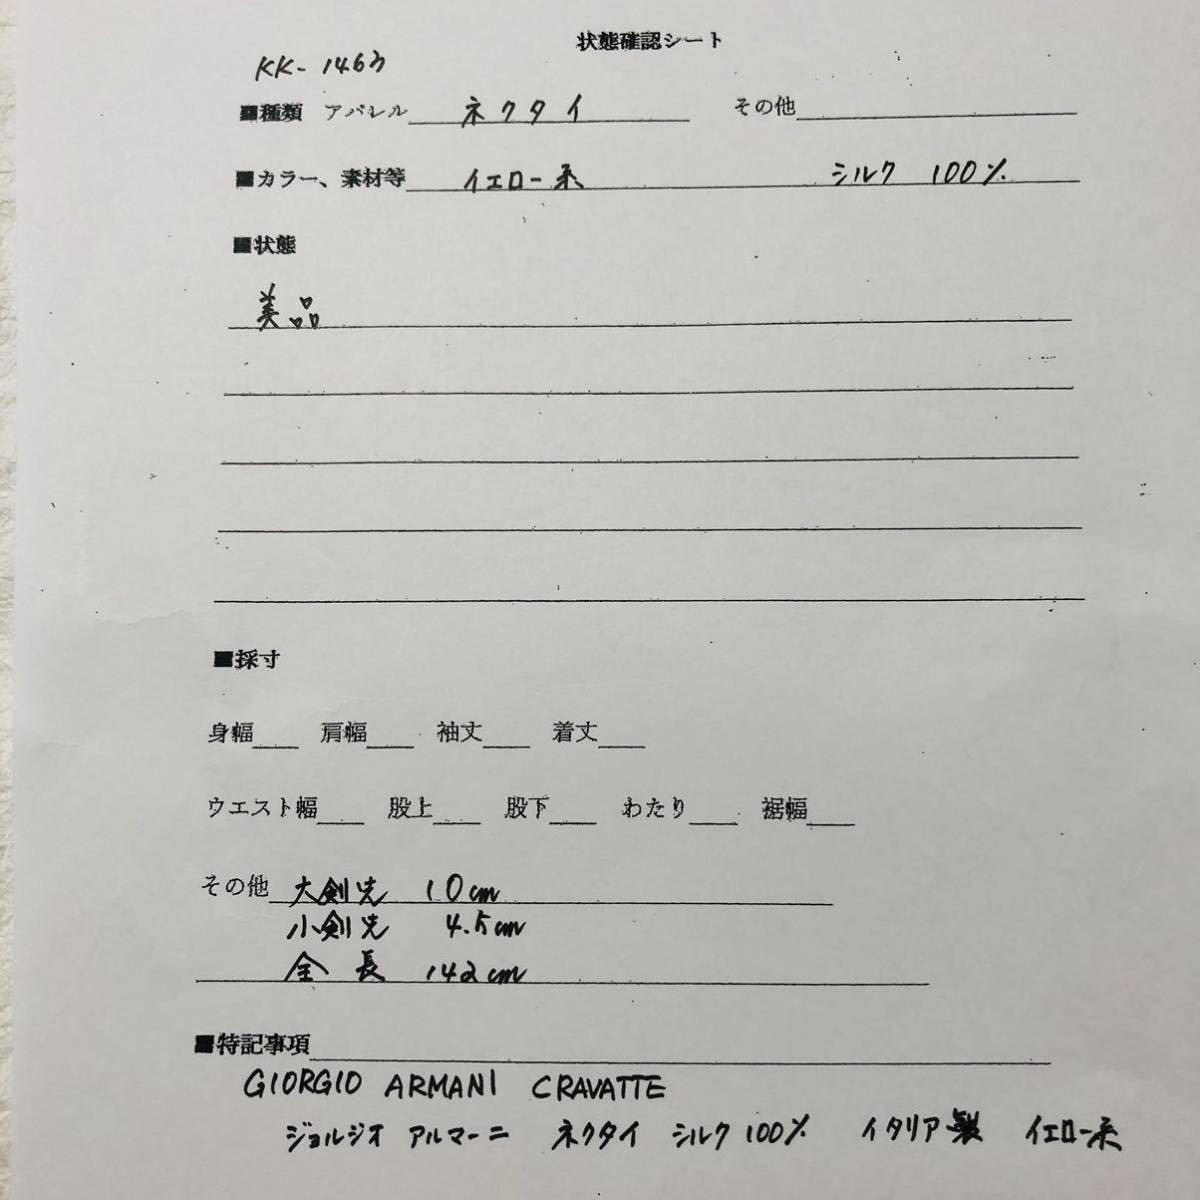 状態確認シート
KK-1463
■種類 アパレル ネクタイ その他
■カラー、素材等 イエロー系 シルク 100%
■状態
美品
■採寸
身幅 肩幅 袖丈 着丈
ウエスト幅 股上 股下 わたり 裾幅
その他 大剣先 10cm
小剣先 4.5cm
全長 142cm
■特記事項
GIORGIO ARMANI CRAVATTE
ジョルジオ アルマーニ ネクタイ シルク100% イタリア製 イエロー系